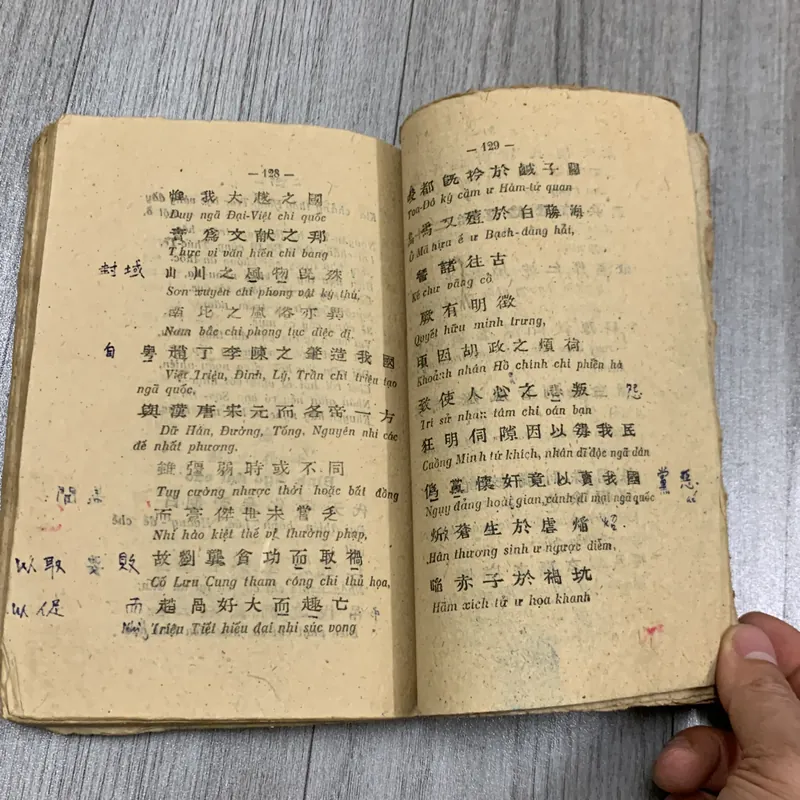 — 128 —
惟我大越之國
Duy ngã Đại-Việt chi quốc
實爲文献之邦
Thực vi văn hiến chi bang
封域 山川之風物旣殊
Sơn xuyên chi phong vật ký thù,
南北之風俗亦異
Nam bắc chi phong tục diệc dị
自 粵趙丁李陳之肇造我國
Việt Triệu, Đinh, Lý, Trần chi triệu tạo
ngã quốc,
與漢唐宋元而各帝一方
Dữ Hán, Đường, Tống, Nguyên nhi các
đế nhất phương.
雖彊弱時或不同
Tuy cường nhược thời hoặc bất đồng
而豪傑世未嘗乏
Nhi hào kiệt thế vị thường phạp,
以取 敗 故劉龔貪功而取禍
Cố Lưu Cung tham công chi thủ họa,
以促 而 趙咼好大而趣亡
Nhi Triệu Tiết hiếu đại nhi súc vong
— 129 —
唆都旣衿於鹹子關
Toa-Đô ký cầm ư Hàm-tử quan
烏馬又殪於白藤海
Ô Mã hựa ế ư Bạch-đằng hải,
嵇諸往古
Kê chư vãng cổ
厥有明徵
Quyết hữu minh trưng,
頃因胡政之煩苛
Khoảnh nhân Hồ chính chi phiền hà
致使人心之怨叛 怨
Trí sử nhân tâm chi oán bạn
狂明伺隙因以毒我民
Cuồng Minh tứ khích, nhân dĩ độc ngã dân
僞黨懷奸竟以賣我國 黨 惡
Ngụy đảng hoài gian, cánh dĩ mại ngã quốc
焮蒼生於虐熖
Hân thương sinh ư ngược diễm,
啗赤子於禍坑
Hãm xích tử ư họa khanh